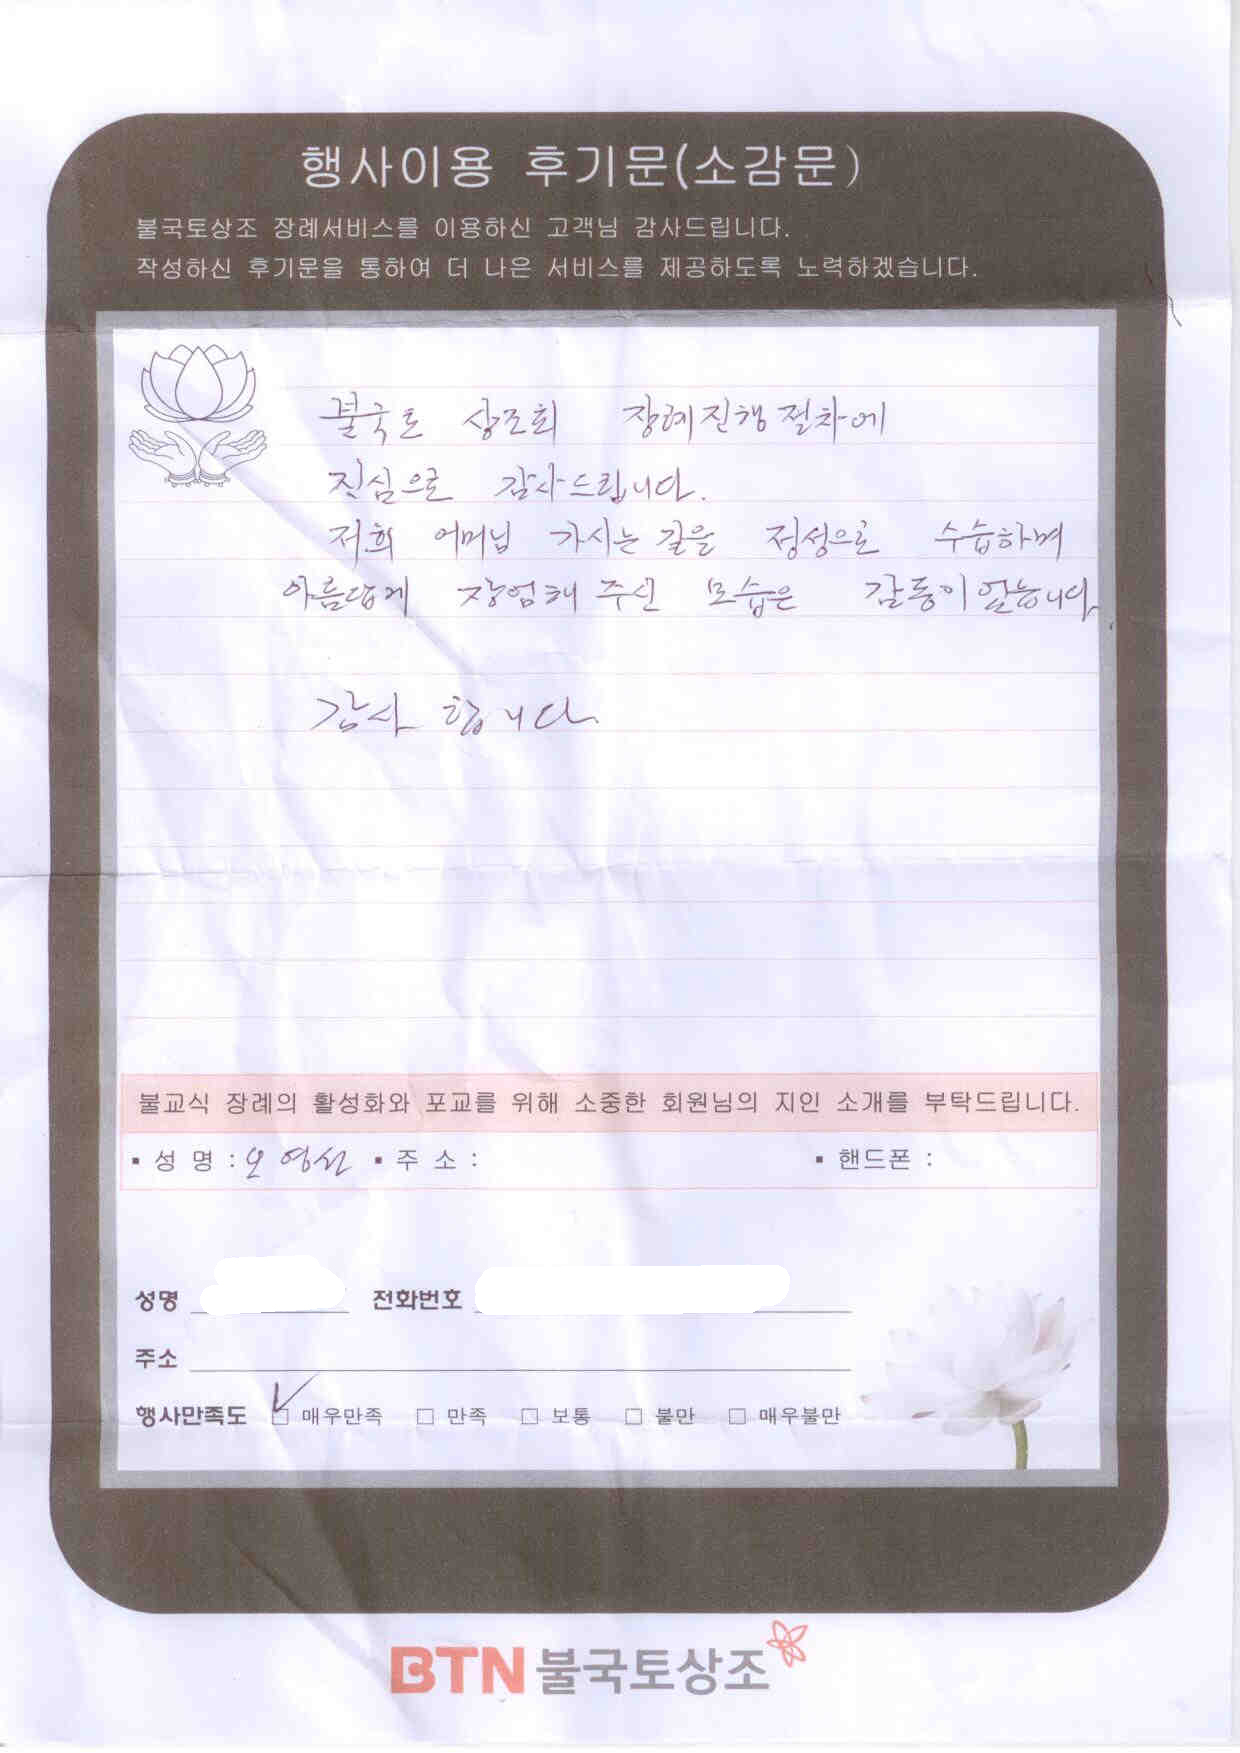 행사이용 후기문(소감문)
불국토상조 장례서비스를 이용하신 고객님 감사드립니다.
작성하신 후기문을 통하여 더 나은 서비스를 제공하도록 노력하겠습니다.
불국토 상조회 장례진행절차에
진심으로 감사드립니다.
저희 어머님 가시는 길을 정성으로 수습하며
아름답게 장엄해 주신 모습은 감동이었습니다.
감사 합니다
불교식 장례의 활성화와 포교를 위해 소중한 회원님의 지인 소개를 부탁드립니다.
▪ 성 명 : 오영선 ▪ 주 소 : ▪ 핸드폰 :
성명 전화번호
주소
행사만족도 ☑ 매우만족 □ 만족 □ 보통 □ 불만 □ 매우불만
BTN 불국토상조